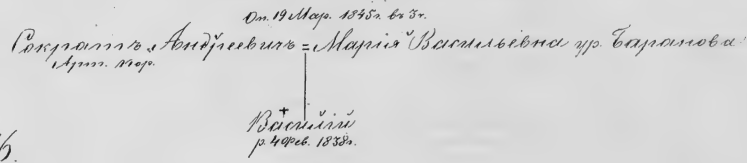 Оп. 19 Мар. 1845г. въ 3ч.
Сократъ Андреевичъ = Марія Васильевна ур. Баранова
Арт. пор.
+
Василій
р. 4 Фев. 1838г.